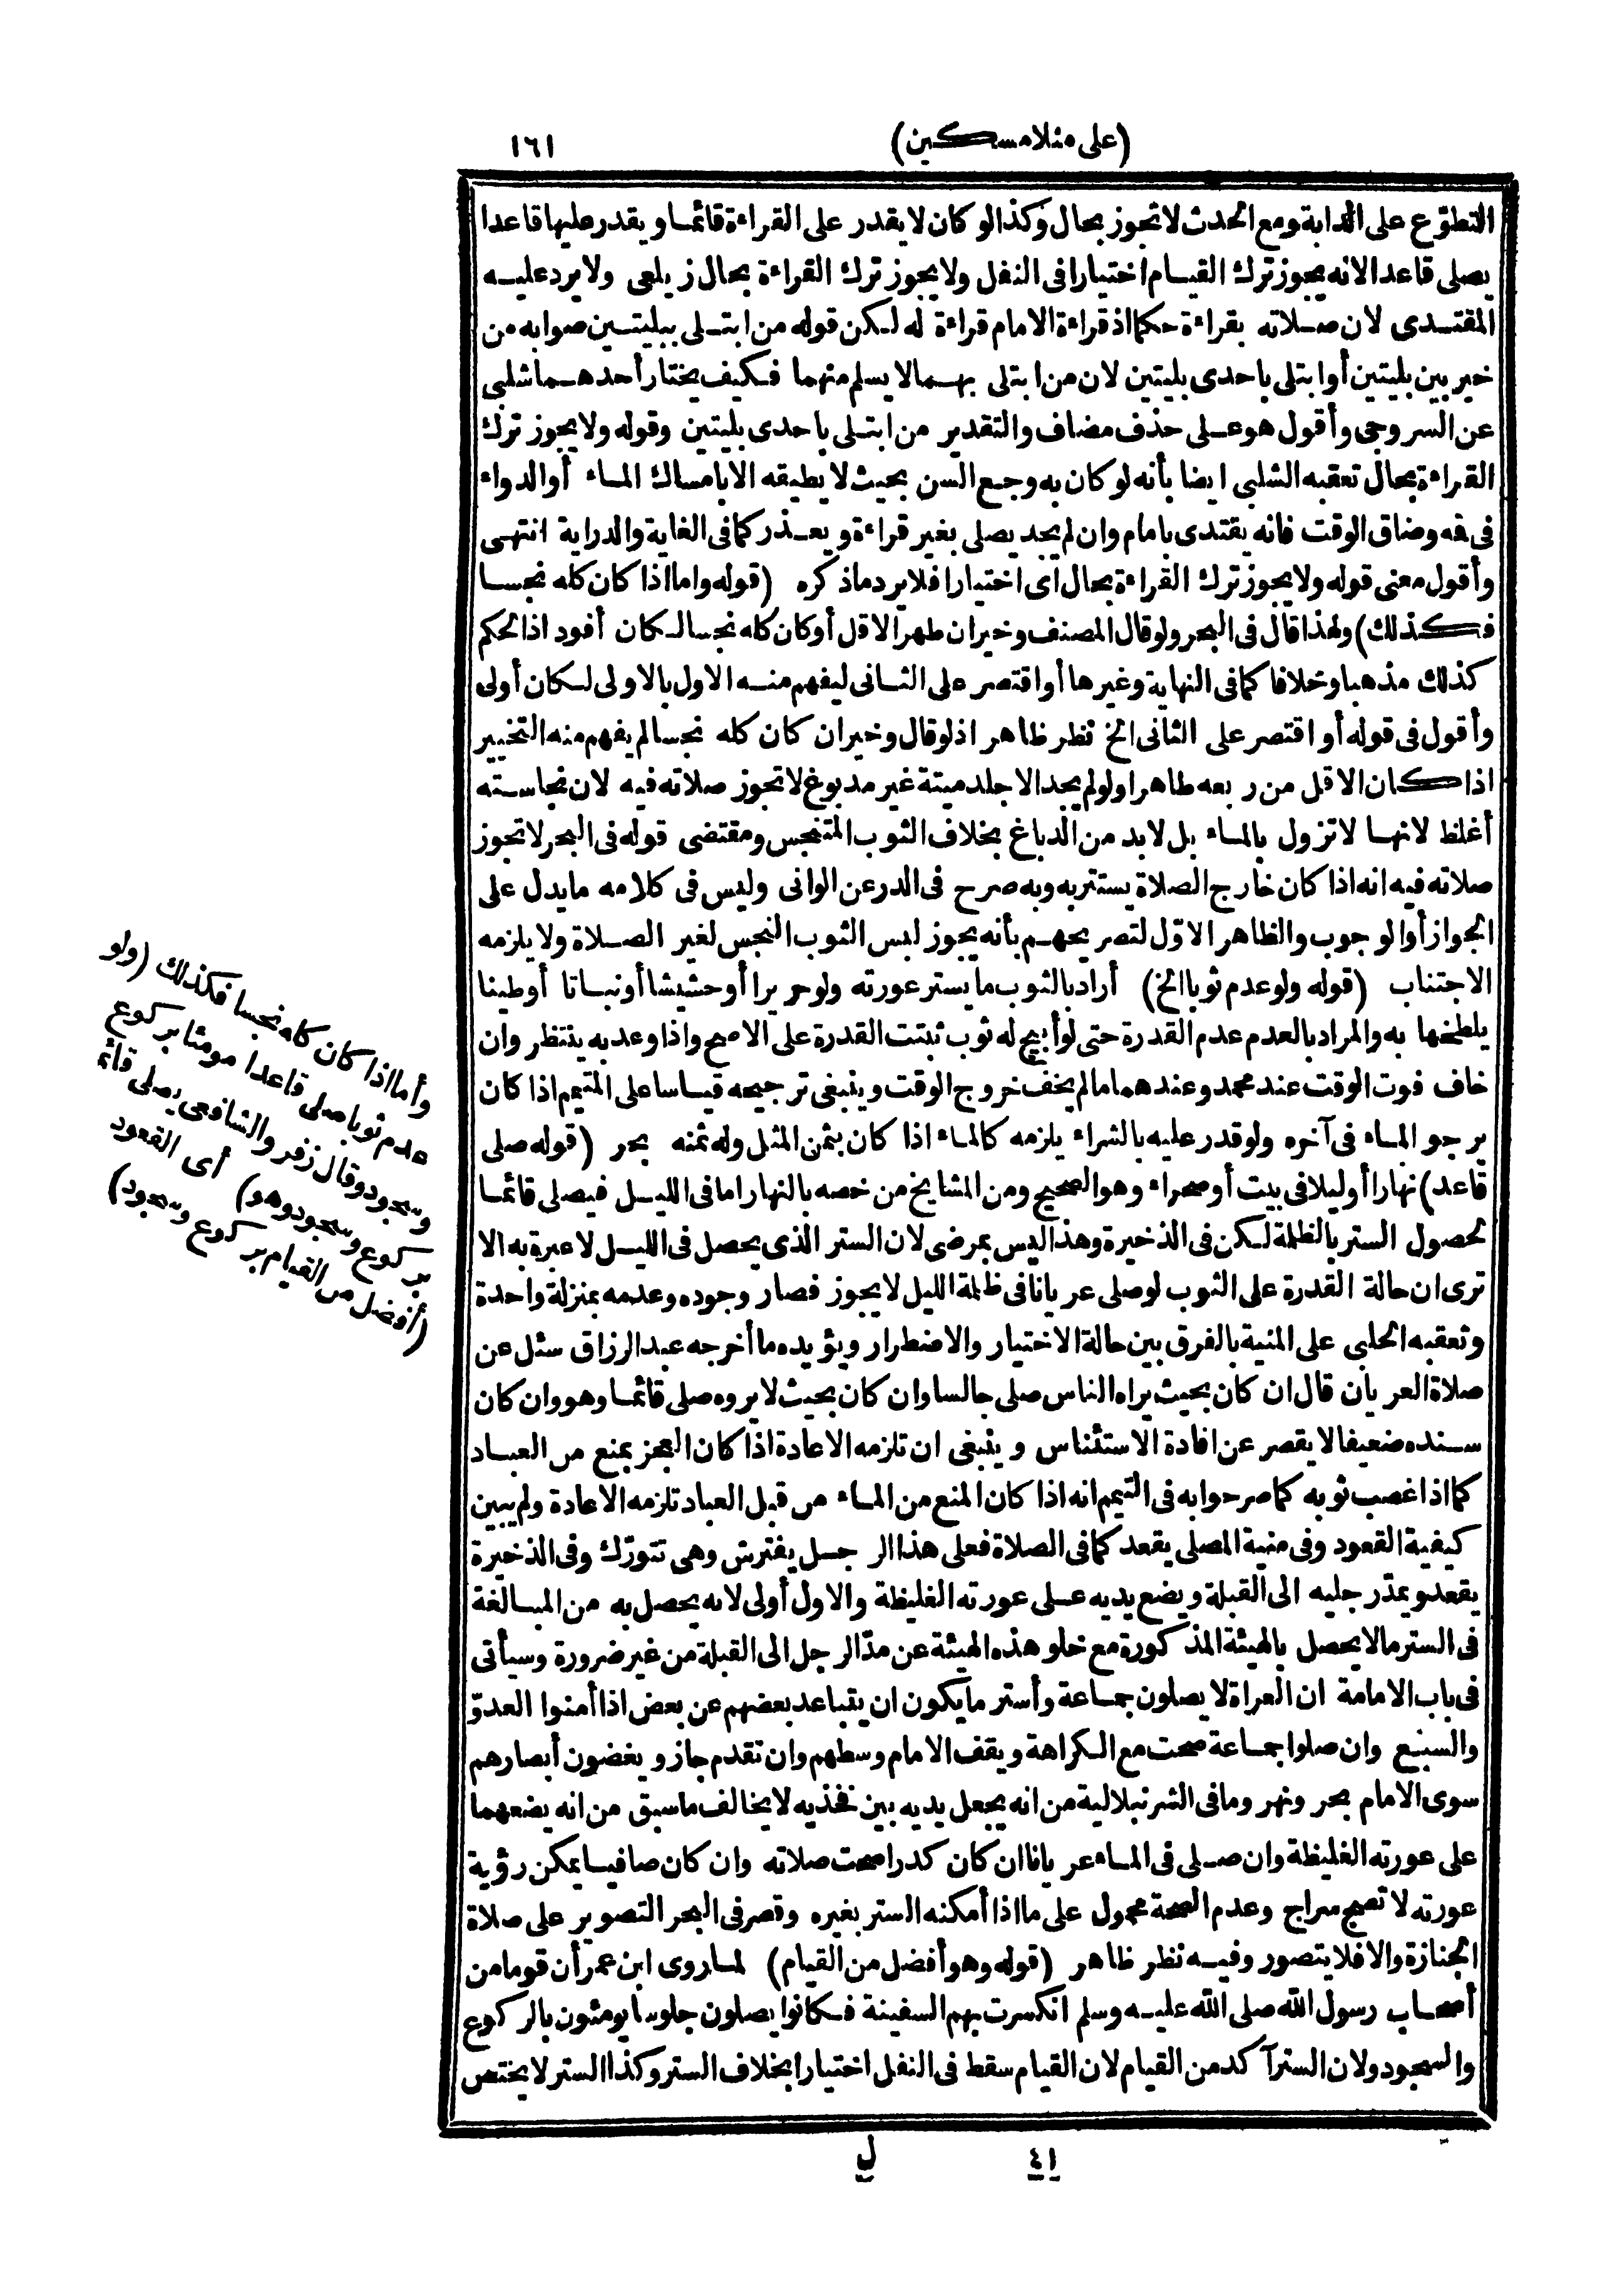 (على منلا مسكين)
١٦١
التطوّع على الدابة ومع الحدث لا تجوز بحال وكذا لو كان لا يقدر على القراءة قائما ويقدر عليها قاعدا
يصلى قاعدا لانه يجوز ترك القيام اختيارا فى النفل ولا يجوز ترك القراءة بحال زيلعى ولا يرد عليه
المقتدى لان صلاته بقراءة حكما اذ قراءة الامام قراءة له لكن قوله من ابتلى ببليتين صوابه من
خير بين بليتين أو ابتلى باحدى بليتين لان من ابتلى بهما لا يسلم منهما فكيف يختار أحدهما شلبى
عن السروجى وأقول هو على حذف مضاف والتقدير من ابتلى باحدى بليتين وقوله ولا يجوز ترك
القراءة بحال تعقبه الشلبى ايضا بأنه لو كان به وجع السن بحيث لا يطيقه الا بامساك الماء أو الدواء
فى فه وضاق الوقت فانه يقتدى بامام وان لم يجد يصلى بغير قراءة ويعذر كما فى الغاية والدراية انتهى
وأقول معنى قوله ولا يجوز ترك القراءة بحال أى اختيارا فلا يرد ماذكره (قوله واما اذا كان كله نجسا
فكذلك) ولهذا قال فى البحر ولو قال المصنف وخير ان طهر الاقل أو كان كله نجسا لكان أفود اذ الحكم
كذلك مذهبا وخلافا كما فى النهاية وغيرها أو اقتصر على الثانى ليفهم منه الاول بالاولى لكان أولى
وأقول فى قوله أو اقتصر على الثانى الخ نظر ظاهر اذ لو قال وخير ان كان كله نجسا لم يفهم منه التخيير
اذا كان الاقل من ربعه طاهرا ولو لم يجد الا جلد ميتة غير مدبوغ لا تجوز صلاته فيه لان نجاسته
أغلظ لانها لا تزول بالماء بل لابد من الدباغ بخلاف الثوب المتنجس ومقتضى قوله فى البحر لا تجوز
صلاته فيه انه اذا كان خارج الصلاة يستتر به وبه صرح فى الدر عن الوانى وليس فى كلامه مايدل على
الجواز أو الوجوب والظاهر الاوّل لتصريحهم بأنه يجوز لبس الثوب النجس لغير الصلاة ولا يلزمه
الاجتناب (قوله ولو عدم ثوبا الخ) أراد بالثوب ما يستر عورته ولو حريرا أو حشيشا أو نباتا أو طينا
يلطخها به والمراد بالعدم عدم القدرة حتى لو أبيح له ثوب ثبتت القدرة على الاصح واذا وعد به ينتظر وان
خاف فوت الوقت عند محمد وعندهما ما لم يخف خروج الوقت وينبغى ترجيحه قياسا على المتيمم اذا كان
يرجو الماء فى آخره ولو قدر عليه بالشراء يلزمه كالماء اذا كان بثمن المثل وله ثمنه بحر (قوله صلى
قاعد) نهارا أو ليلا فى بيت أو صحراء وهو الصحيح ومن المشايخ من خصه بالنهار اما فى الليل فيصلى قائما
لحصول الستر بالظلمة لكن فى الذخيرة وهذا ليس بمرضى لان الستر الذى يحصل فى الليل لا عبرة به الا
ترى ان حالة القدرة على الثوب لو صلى عريانا فى ظلمة الليل لا يجوز فصار وجوده وعدمه بمنزلة واحدة
وتعقبه الحلبى على المنية بالفرق بين حالة الاختيار والاضطرار ويؤيده ما أخرجه عبد الرزاق سئل عن
صلاة العريان قال ان كان بحيث يراه الناس صلى جالسا وان كان بحيث لا يروه صلى قائما وهو وان كان
سنده ضعيفا لا يقصر عن افادة الاستئناس وينبغى ان تلزمه الاعادة اذا كان العجز بمنع من العباد
كما اذا غصب ثوبه كما صرحوا به فى التيمم انه اذا كان المنع من الماء من قبل العباد تلزمه الاعادة ولم يبين
كيفية القعود وفى منية المصلى يقعد كما فى الصلاة فعلى هذا الرجل يفترش وهى تتورّك وفى الذخيرة
يقعد ويمدّ رجليه الى القبلة ويضع يديه على عورته الغليظة والاول أولى لانه يحصل به من المبالغة
فى الستر مالا يحصل بالهيئة المذكورة مع خلو هذه الهيئة عن مدّ الرجل الى القبلة من غير ضرورة وسيأتى
فى باب الامامة ان العراة لا يصلون جماعة وأستر ما يكون ان يتباعد بعضهم عن بعض اذا أمنوا العدوّ
والسبع وان صلوا جماعة صحت مع الكراهة ويقف الامام وسطهم وان تقدم جاز ويغضون أبصارهم
سوى الامام بحر ونهر وما فى الشرنبلالية من انه يجعل يديه بين فخذيه لا يخالف ما سبق من انه يضعهما
على عورته الغليظة وان صلى فى الماء عريانا ان كان كدرا صحت صلاته وان كان صافيا يمكن رؤية
عورته لا تصح سراج وعدم الصحة محمول على ما اذا أمكنه الستر بغيره وقصر فى البحر التصوير على صلاة
الجنازة والا فلا يتصور وفيه نظر ظاهر (قوله وهو أفضل من القيام) لما روى ابن عمر أن قوما من
أصحاب رسول الله صلى الله عليه وسلم انكسرت بهم السفينة فكانوا يصلون جلوسا يومئون بالركوع
والسجود ولان الستر آكد من القيام لان القيام سقط فى النفل اختيارا بخلاف الستر وكذا الستر لا يختص
وأما اذا كان كله نجسا فكذلك (ولو
عدم ثوبا صلى قاعدا مومئا بركوع
وسجود) وقال زفر والشافعى يصلى قائما
بركوع وسجود (وهو) أى القعود
(أفضل من القيام بركوع وسجود)
٤١
ل